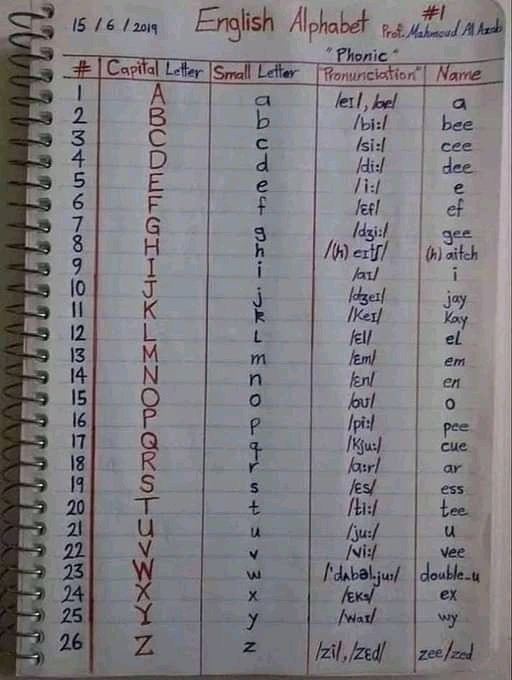 15 / 6 / 2019 English Alphabet #1
Prof. Mahmoud Al Azab
"Phonic"
# Capital Letter Small Letter Pronunciation" Name
1 A a /eɪ/, /æ/ a
2 B b /bi:/ bee
3 C c /si:/ cee
4 D d /di:/ dee
5 E e /i:/ e
6 F f /ɛf/ ef
7 G g /dʒi:/ gee
8 H h /(h) eɪtʃ/ (h) aitch
9 I i /aɪ/ i
10 J j /dʒeɪ/ jay
11 K k /Keɪ/ Kay
12 L L /ɛl/ eL
13 M m /ɛm/ em
14 N n /ɛn/ en
15 O o /oʊ/ o
16 P p /pi:/ pee
17 Q q /Kju:/ cue
18 R r /ɑ:r/ ar
19 S s /ɛs/ ess
20 T t /ti:/ tee
21 U u /ju:/ u
22 V v /vi:/ vee
23 W w /'dʌbəl.ju:/ double-u
24 X x /ɛks/ ex
25 Y y /waɪ/ wy
26 Z z /zi/, /zɛd/ zee/zed